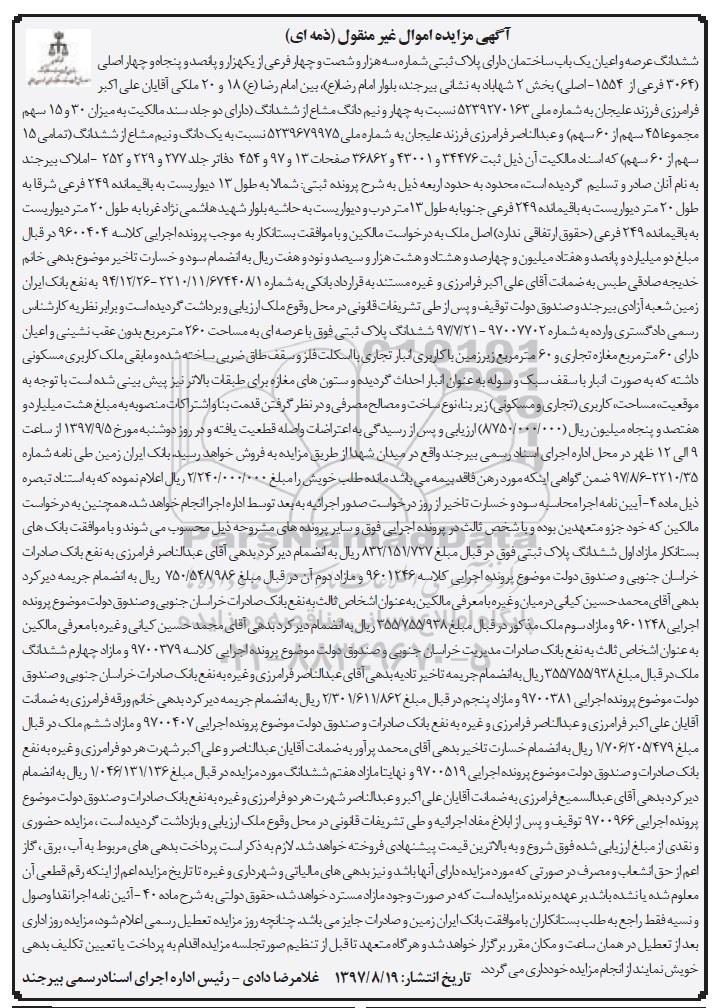 آگهی مزایده اموال غیر منقول (ذمه ای)
ششدانگ عرصه و اعیان یک باب ساختمان دارای پلاک ثبتی شماره سه هزار و شصت و چهار فرعی از یکهزار و پانصد و پنجاه و چهار اصلی
(۳۰۶۴ فرعی از ۱۵۵۴-اصلی) بخش ۲ شهاباد به نشانی بیرجند، بلوار امام رضا(ع)، بین امام رضا (ع) ۱۸ و ۲۰ ملکی آقایان علی اکبر
فرامرزی فرزند علیجان به شماره ملی ۵۲۳۹۲۷۰۱۶۳ نسبت به چهار و نیم دانگ مشاع از ششدانگ (دارای دو جلد سند مالکیت به میزان ۳۰ و ۱۵ سهم
مجموعا ۴۵ سهم از ۶۰ سهم) و عبدالناصر فرامرزی فرزند علیجان به شماره ملی ۵۲۳۹۶۷۹۹۷۵ نسبت به یک دانگ و نیم مشاع از ششدانگ (تمامی ۱۵
سهم از ۶۰ سهم) که اسناد مالکیت آن ذیل ثبت ۳۴۴۷۶ و ۴۳۰۰۱ و ۳۶۸۶۲ صفحات ۱۳ و ۹۷ و ۴۵۴ دفاتر جلد ۲۷۷ و ۲۲۹ و ۲۵۲ -املاک بیرجند
به نام آنان صادر و تسلیم گردیده است، محدود به حدود اربعه ذیل به شرح پرونده ثبتی: شمالا به طول ۱۳ دیواریست به باقیمانده ۲۴۹ فرعی شرقا به
طول ۲۰ متر دیواریست به باقیمانده ۲۴۹ فرعی جنوبا به طول ۱۳متر درب و دیواریست به حاشیه بلوار شهید هاشمی نژاد غربا به طول ۲۰ متر دیواریست
به باقیمانده ۲۴۹ فرعی (حقوق ارتفاقی ندارد) اصل ملک به درخواست مالکین و با موافقت بستانکار به موجب پرونده اجرایی کلاسه ۹۶۰۰۴۰۴ در قبال
مبلغ دو میلیارد و پانصد و هفتاد میلیون و چهارصد و هشتاد و هشت هزار و سیصد و نود و هفت ریال به انضمام سود و خسارت تاخیر موضوع بدهی خانم
خدیجه صادقی طبس به ضمانت آقای علی اکبر فرامرزی و غیره مستند به قرارداد بانکی به شماره ۲۲۱۰/۱۱/۶۷۴۴۰۸/۱ -۹۴/۱۲/۲۶ به نفع بانک ایران
زمین شعبه آزادی بیرجند و صندوق دولت توقیف و پس از طی تشریفات قانونی در محل وقوع ملک ارزیابی و برداشت گردیده است و برابر نظریه کارشناس
رسمی دادگستری وارده به شماره ۹۷۰۰۷۷۰۲ -۹۷/۷/۲۱ ششدانگ پلاک ثبتی فوق با عرصه ای به مساحت ۲۶۰ مترمربع بدون عقب نشینی و اعیان
دارای ۶۰ مترمربع مغازه تجاری و ۶۰ مترمربع زیرزمین با کاربری انبار تجاری با اسکلت فلز و سقف طاق ضربی ساخته شده و مابقی ملک کاربری مسکونی
داشته که به صورت انبار با سقف سبک و سوله به عنوان انبار احداث گردیده و ستون های مغازه برای طبقات بالاتر نیز پیش بینی شده است با توجه به
موقعیت، مساحت، کاربری (تجاری و مسکونی) زیر بنا، نوع ساخت و مصالح مصرفی و در نظر گرفتن قدمت بنا و اشتراکات منصوبه به مبلغ هشت میلیارد و
هفتصد و پنجاه میلیون ریال (۸/۷۵۰/۰۰۰/۰۰۰) ارزیابی و پس از رسیدگی به اعتراضات واصله قطعیت یافته و در روز دوشنبه مورخ ۱۳۹۷/۹/۵ از ساعت
۹ الی ۱۲ ظهر در محل اداره اجرای اسناد رسمی بیرجند واقع در میدان شهدا از طریق مزایده به فروش خواهد رسید. بانک ایران زمین طی نامه شماره
۲۲۱۰/۳۵-۹۷/۸/۶ ضمن گواهی اینکه مورد رهن فاقد بیمه می باشد مانده طلب خویش را مبلغ ۲/۲۴۰/۰۰۰/۰۰۰ ریال اعلام نموده که به استناد تبصره
ذیل ماده ۴- آیین نامه اجرا محاسبه سود و خسارت تاخیر از روز درخواست صدور اجرائیه به بعد توسط اداره اجرا انجام خواهد شد. همچنین به درخواست
مالکین که خود جزو متعهدین بوده و یا شخص ثالث در پرونده اجرایی فوق و سایر پرونده های مشروحه ذیل محسوب می شوند و با موافقت بانک های
بستانکار مازاد اول ششدانگ پلاک ثبتی فوق در قبال مبلغ ۸۳۲/۱۵۱/۷۲۷ ریال به انضمام دیرکرد بدهی آقای عبدالناصر فرامرزی به نفع بانک صادرات
خراسان جنوبی و صندوق دولت موضوع پرونده اجرایی کلاسه ۹۶۰۱۲۴۶ و مازاد دوم آن در قبال مبلغ ۷۵۰/۵۴۸/۹۸۶ ریال به انضمام جریمه دیرکرد
بدهی آقای محمد حسین کیانی درمیان و غیره با معرفی مالکین به عنوان اشخاص ثالث به نفع بانک صادرات خراسان جنوبی و صندوق دولت موضوع پرونده
اجرایی ۹۶۰۱۲۴۸ و مازاد سوم ملک مذکور در قبال مبلغ ۳۵۸/۷۵۵/۹۳۸ ریال به انضمام دیر کرد بدهی آقای محمد حسین کیانی و غیره با معرفی مالکین
به عنوان اشخاص ثالث به نفع بانک صادرات مدیریت خراسان جنوبی و صندوق دولت موضوع پرونده اجرایی کلاسه ۹۷۰۰۳۷۹ و مازاد چهارم ششدانگ
ملک در قبال مبلغ ۳۵۵/۷۵۵/۹۳۸ ریال به انضمام جریمه تاخیر تادیه بدهی آقای عبدالناصر فرامرزی و غیره به نفع بانک صادرات خراسان جنوبی و صندوق
دولت موضوع پرونده اجرایی ۹۷۰۰۳۸۱ و مازاد پنجم در قبال مبلغ ۲/۳۰۱/۶۱۱/۸۶۲ ریال به انضمام جریمه دیر کرد بدهی خانم ورقه فرامرزی به ضمانت
آقایان علی اکبر فرامرزی و عبدالناصر فرامرزی و غیره به نفع بانک صادرات و صندوق دولت موضوع پرونده اجرایی ۹۷۰۰۴۰۷ و مازاد ششم ملک در قبال
مبلغ ۱/۷۰۶/۲۰۵/۴۷۹ ریال به انضمام خسارت تاخیر بدهی آقای محمد پرآور به ضمانت آقایان عبدالناصر و علی اکبر شهرت هر دو فرامرزی و غیره به نفع
بانک صادرات و صندوق دولت موضوع پرونده اجرایی ۹۷۰۰۵۱۹ و نهایتا مازاد هفتم ششدانگ مورد مزایده در قبال مبلغ ۱/۰۴۶/۱۳۱/۱۳۶ ریال به انضمام
دیر کرد بدهی آقای عبدالسمیع فرامرزی به ضمانت آقایان علی اکبر و عبدالناصر شهرت هر دو فرامرزی و غیره به نفع بانک صادرات و صندوق دولت موضوع
پرونده اجرایی ۹۷۰۰۹۶۶ توقیف و پس از ابلاغ مفاد اجرائیه و طی تشریفات قانونی در محل وقوع ملک ارزیابی و بازداشت گردیده است، مزایده حضوری
و نقدی از مبلغ ارزیابی شده فوق شروع و به بالاترین قیمت پیشنهادی فروخته خواهد شد. لازم به ذکر است پرداخت بدهی های مربوط به آب، برق، گاز
اعم از حق انشعاب و مصرف در صورتی که مورد مزایده دارای آنها باشد و نیز بدهی های مالیاتی و شهرداری و غیره تا تاریخ مزایده اعم از اینکه رقم قطعی آن
معلوم شده یا نشده باشد بر عهده برنده مزایده است که در صورت وجود مازاد مسترد خواهد شد، حقوق دولتی به شرح ماده ۴۰ -آئین نامه اجرا نقدا وصول
و نسیه فقط راجع به طلب بستانکاران با موافقت بانک ایران زمین و صادرات جایز می باشد. چنانچه روز مزایده تعطیل رسمی اعلام شود، مزایده روز اداری
بعد از تعطیل در همان ساعت و مکان مقرر برگزار خواهد شد و هرگاه متعهد تا قبل از تنظیم صورتجلسه مزایده اقدام به پرداخت یا تعیین تکلیف بدهی
خویش نمایند از انجام مزایده خودداری می گردد.
تاریخ انتشار: ۱۳۹۷/۸/۱۹ غلامرضا دادی - رئیس اداره اجرای اسناد رسمی بیرجند
ParsNamadData
پایگاه اطلاع رسانی مناقصه و مزایده
۰۲۱-۸۸۳۴۹۶۷۰-۵